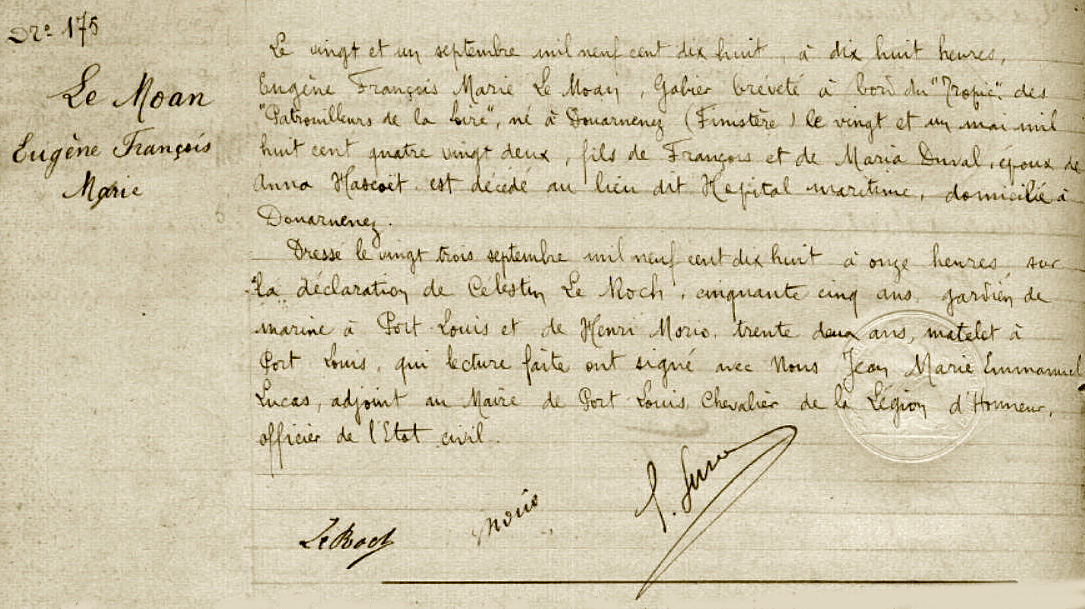 Nro 175
Le Moan
Eugène François
Marie
Le vingt et un septembre mil neuf cent dix huit, à dix huit heures,
Eugène François Marie Le Moan, Gabier bréveté à bord du "Tropic" des
"Patrouilleurs de la Loire", né à Douarnenez (Finistère) le vingt et un mai mil
huit cent quatre vingt deux, fils de François et de Maria Duval, époux de
Anna Hascoët est décédé au lieu dit Hopital maritime, domicilié à
Douarnenez.
Dressé le vingt trois septembre mil neuf cent dix huit à onze heures, sur
la déclaration de Célestin Le Roch, cinquante cinq ans, gardien de
marine à Port Louis et de Henri Morio, trente deux ans, matelot à
Port Louis, qui lecture faite ont signé avec Nous Jean Marie Emmanuel
Lucas, adjoint au Maire de Port Louis, Chevalier de la Légion d'Honneur,
officier de l'Etat civil.
Le Roch
Morio